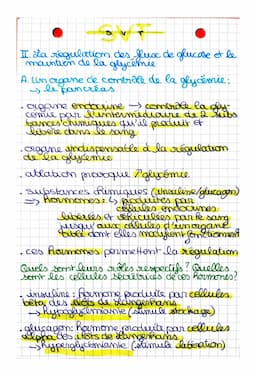 SVT
II. La régulation des flux de glucose et le
maintien de la glycémie
A. Un organe de contrôle de la glycémie:
↳ le pancréas
• organe endocrine → contrôle la gly-
cémie par l'intermédiaire de 2 subs
tances chimiques qu'il produit et
libère dans le sang
• organe indispensable à la régulation
de la glycémie
• ablation provoque ↗glycémie
• substances chimiques (insuline/glucagon)
= hormones: ↳ produites par
cellules endocrines
libérées et véhiculées par le sang
jusqu'aux cellules d'un organe
dont elles modifient fonctionnement
• ces hormones permettent la régulation
Quels sont leurs rôles respectifs? Quelles
sont les cellules sécrétrices de ces hormones?
• insuline: hormone produite par cellules
béta, des îlots de Langerhans
↳ hypoglycémiante (stimule stockage)
• glucagon: hormone produite par cellules
alpha des îlots de Langerhans
↳ hyperglycémiante (stimule libération)